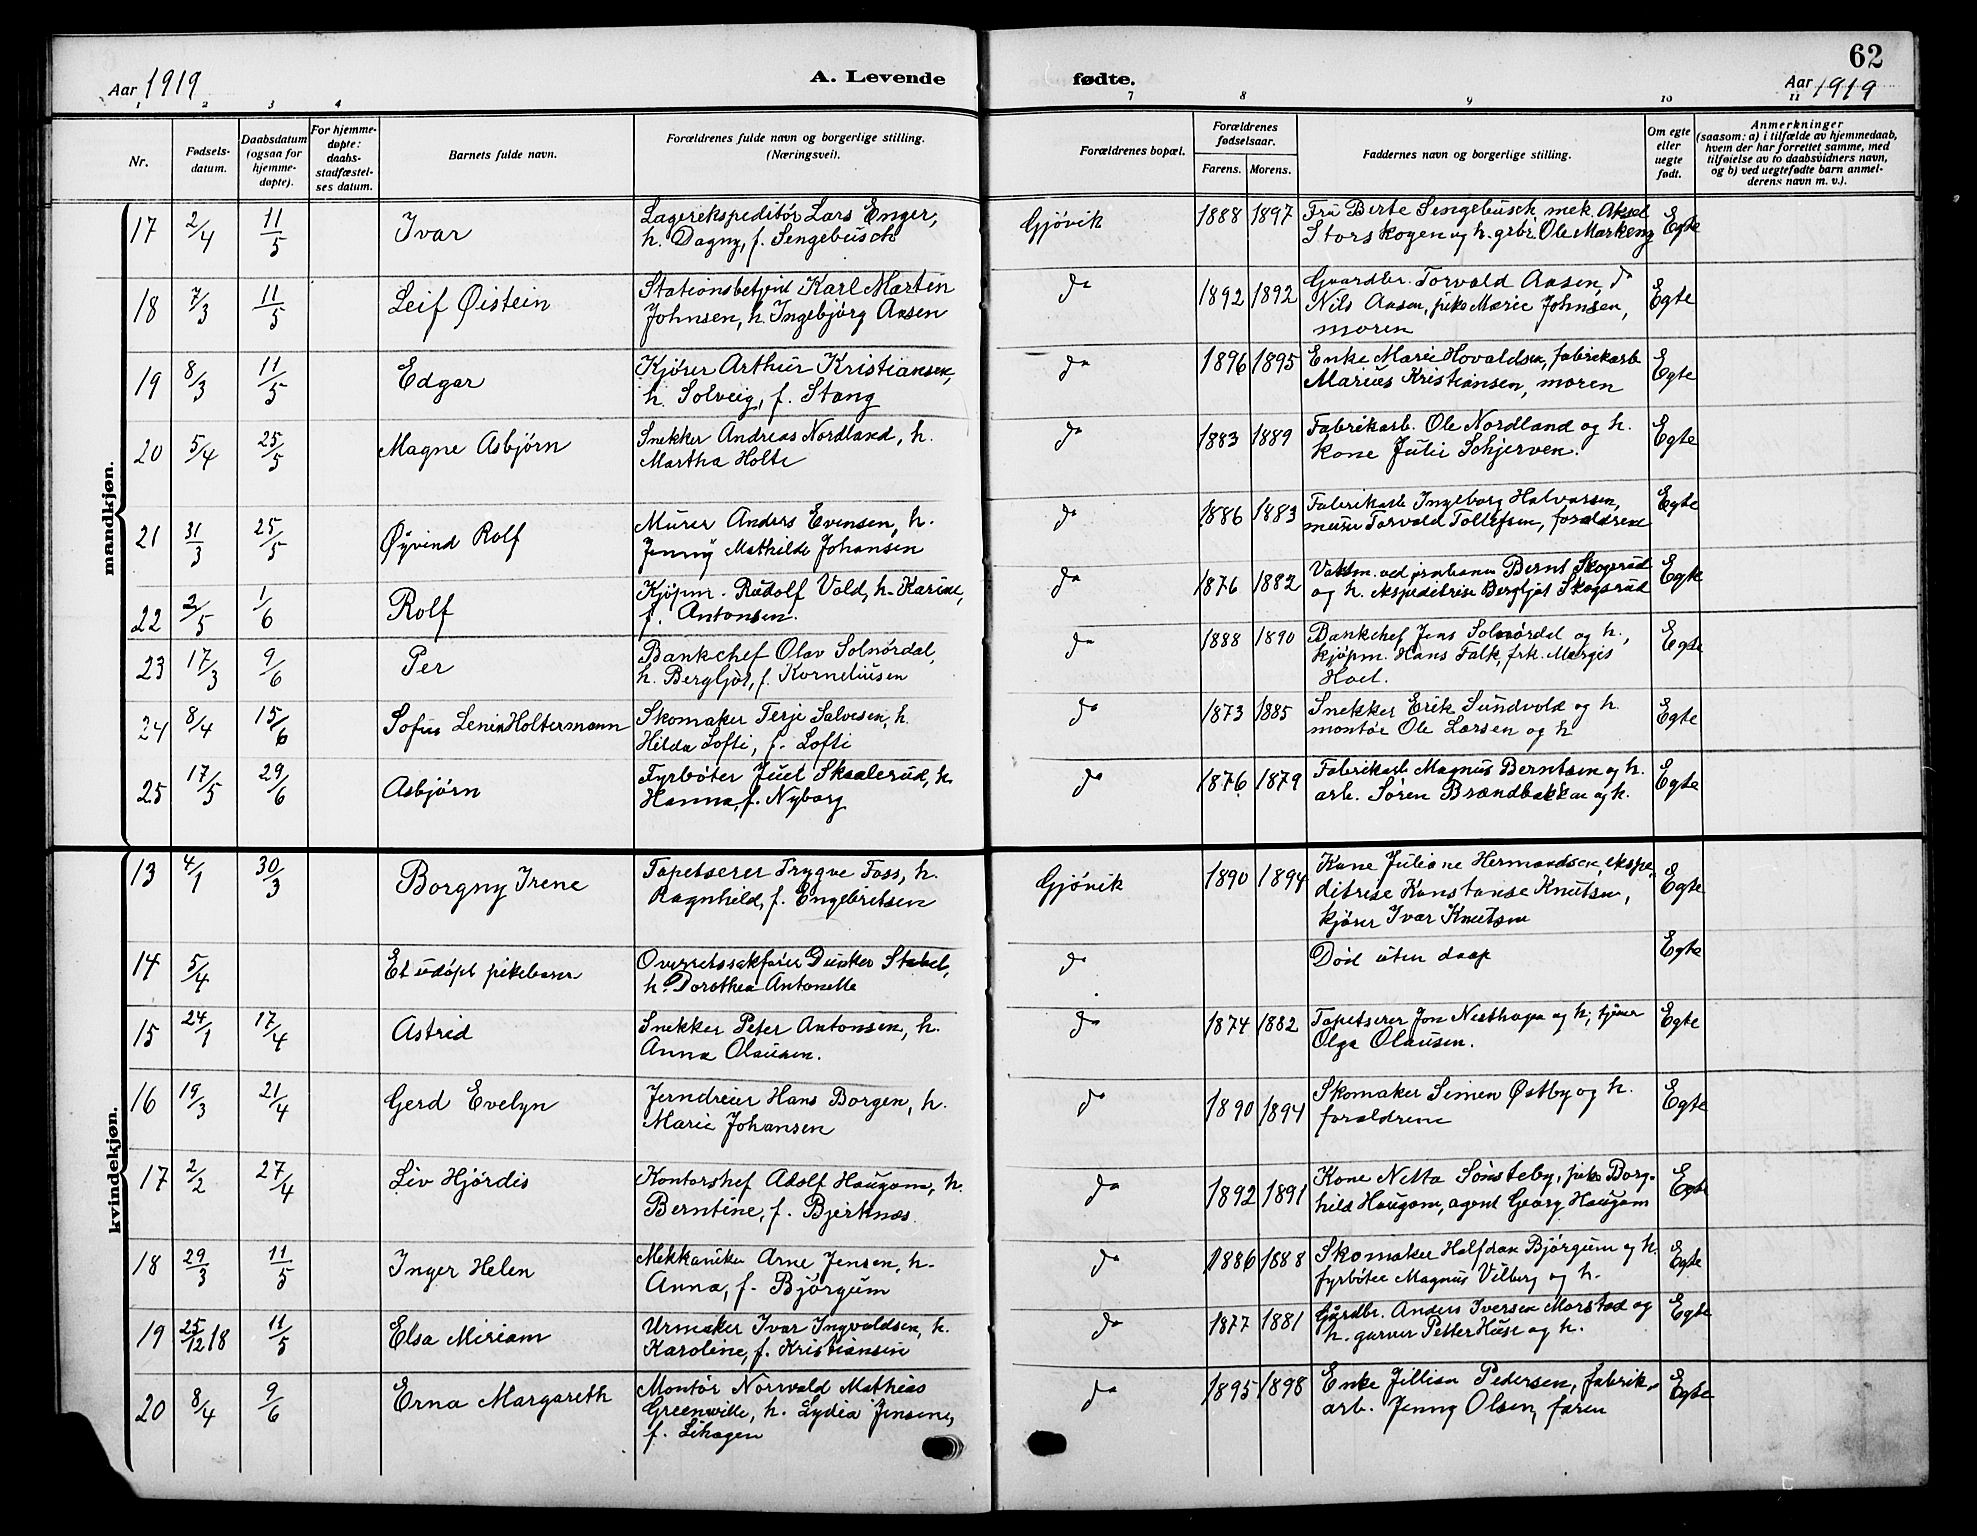 62
Aar 1919
A. Levende fødte.
Aar 1919
1 2 3 4 7 8 9 10 11
Nr.
Fødsels-
datum.
Daabsdatum
(ogsaa for
hjemme-
døpte).
For hjemme-
døpte:
daabs-
stadfæstel-
ses datum.
Barnets fulde navn.
Forældrenes fulde navn og borgerlige stilling.
(Næringsvei).
Forældrenes bopæl.
Forældrenes
fødselsaar.
Farens. Morens.
Faddernes navn og borgerlige stilling.
Om egte
eller
uegte
født.
Anmerkninger
(saasom: a) i tilfælde av hjemmedaab,
hvem der har forrettet samme, med
tilføielse av to daabsvidners navn,
og b) ved uegtefødte barn anmel-
derens navn m. v.).
mandkjøn.
17 2/4 11/5 Ivar
Lagerekspeditør Lars Enger,
h. Dagny, f. Sengebusch
Gjøvik 1888 1897
Fru Berte Sengebusch, mek. Aksel
Storskogen og h. grbr. Ole Markeng
Egte
18 7/3 11/5 Leif Øistein
Stationsbetjent Karl Martin
Johnsen, h. Ingebjørg Aasen
do 1892 1892
Gaardbr. Torvald Aasen, do
Nils Aasen, pike Marie Johnsen,
moren
Egte
19 8/3 11/5 Edgar
Kjører Arthur Kristiansen,
h. Solveig, f. Stang
do 1896 1895
Enke Marie Hovaldsen, fabrikarb
Marius Kristiansen, moren
Egte
20 5/4 25/5 Magne Asbjørn
Snekker Andreas Nordland, h.
Martha Holte
do 1883 1889
Fabrikarb. Ole Nordland og h.
Kone Julie Schjerven.
Egte
21 31/3 25/5 Øyvind Rolf
Murer Anders Evensen, h.
Jenny Mathilde Johansen
do 1886 1883
Fabrikarb Ingeborg Halvorsen,
murer Torvald Tollefsen, forældrene
Egte
22 2/5 1/6 Rolf
Kjøpm. Rudolf Vold, h. Karine,
f. Antonsen.
do 1876 1882
Vaktm. ved jernbanen Bernt Skogsrud
og h. ekspeditrise Bergljot Skogsrud
Egte
23 17/3 9/6 Per
Bankchef Olav Solnørdal,
h. Bergljot, f. Korneliusen
do 1888 1890
Bankchef Jens Solnørdal og h.,
kjøpm. Hans Falk, frk. Margit
Hoel.
Egte
24 8/4 15/6 Sofus Lenin Holtermann
Skomaker Terje Salvesen, h.
Hilda Lofti, f. Lofti
do 1873 1885
Snekker Erik Sundvold og h
montør Ole Larsen og h
Egte
25 17/5 29/6 Asbjørn
Fyrbøter Juel Skaalerud, h.
Hanna, f. Nyborg
do 1876 1879
Fabrikarb Magnus Berntsen og h.
arb. Søren Brændbakken og h.
Egte
kvindekjøn.
13 4/1 30/3 Borgny Irene
Tapetserer Trygve Foss, h.
Ragnhild, f. Engebretsen
Gjøvik 1890 1894
Kone Juliane Hermandsen, ekspe
ditrise Konstanse Knutsen,
kjører Ivar Knutsen
Egte
14 5/4 Et udøpt pikebarn
Overretssakfører Dunker Stabel,
h. Dorothea Antonette
do
Død uten daap
Egte
15 24/1 17/4 Astrid
Snekker Peter Antonsen, h.
Anna Olausen.
do 1874 1882
Tapetserer Jon Nesthagen og h,
Olga Olausen.
Egte
16 19/3 21/4 Gerd Evelyn
Jerndreier Hans Borgen, h.
Marie Johansen
do 1890 1894
Skomaker Simen Østby og h.
forældrene
Egte
17 2/2 27/4 Liv Hjørdis
Kontorchef Adolf Haugom, h.
Berntine, f. Bjerknæs
do 1892 1891
Kone Netta Sønsteby, pike Borg-
hild Haugom, agent Georg Haugom
Egte
18 29/3 11/5 Inger Helen
Mekkaniker Arne Jensen, h.
Anna, f. Bjørgum
do 1886 1888
Skomaker Halfdan Bjørgum og h.
fyrbøter Magnus Vilberg og h.
Egte
19 25/12 18 11/5 Elsa Miriam
Urmaker Ivar Ingvoldsen, h.
Karoline, f. Kristiansen
do 1877 1881
Gårdbr. Anders Iversen Morstad og
h. garver Petter Huse og h.
Egte
20 8/4 9/6 Erna Margareth
Montør Norvald Mathias
Greenwille, h. Lydia Jensine,
f. Lihagen
do 1895 1898
Enke Jillian Pedersen, fabrik-
arb. Jenny Olsen, faren
Egte